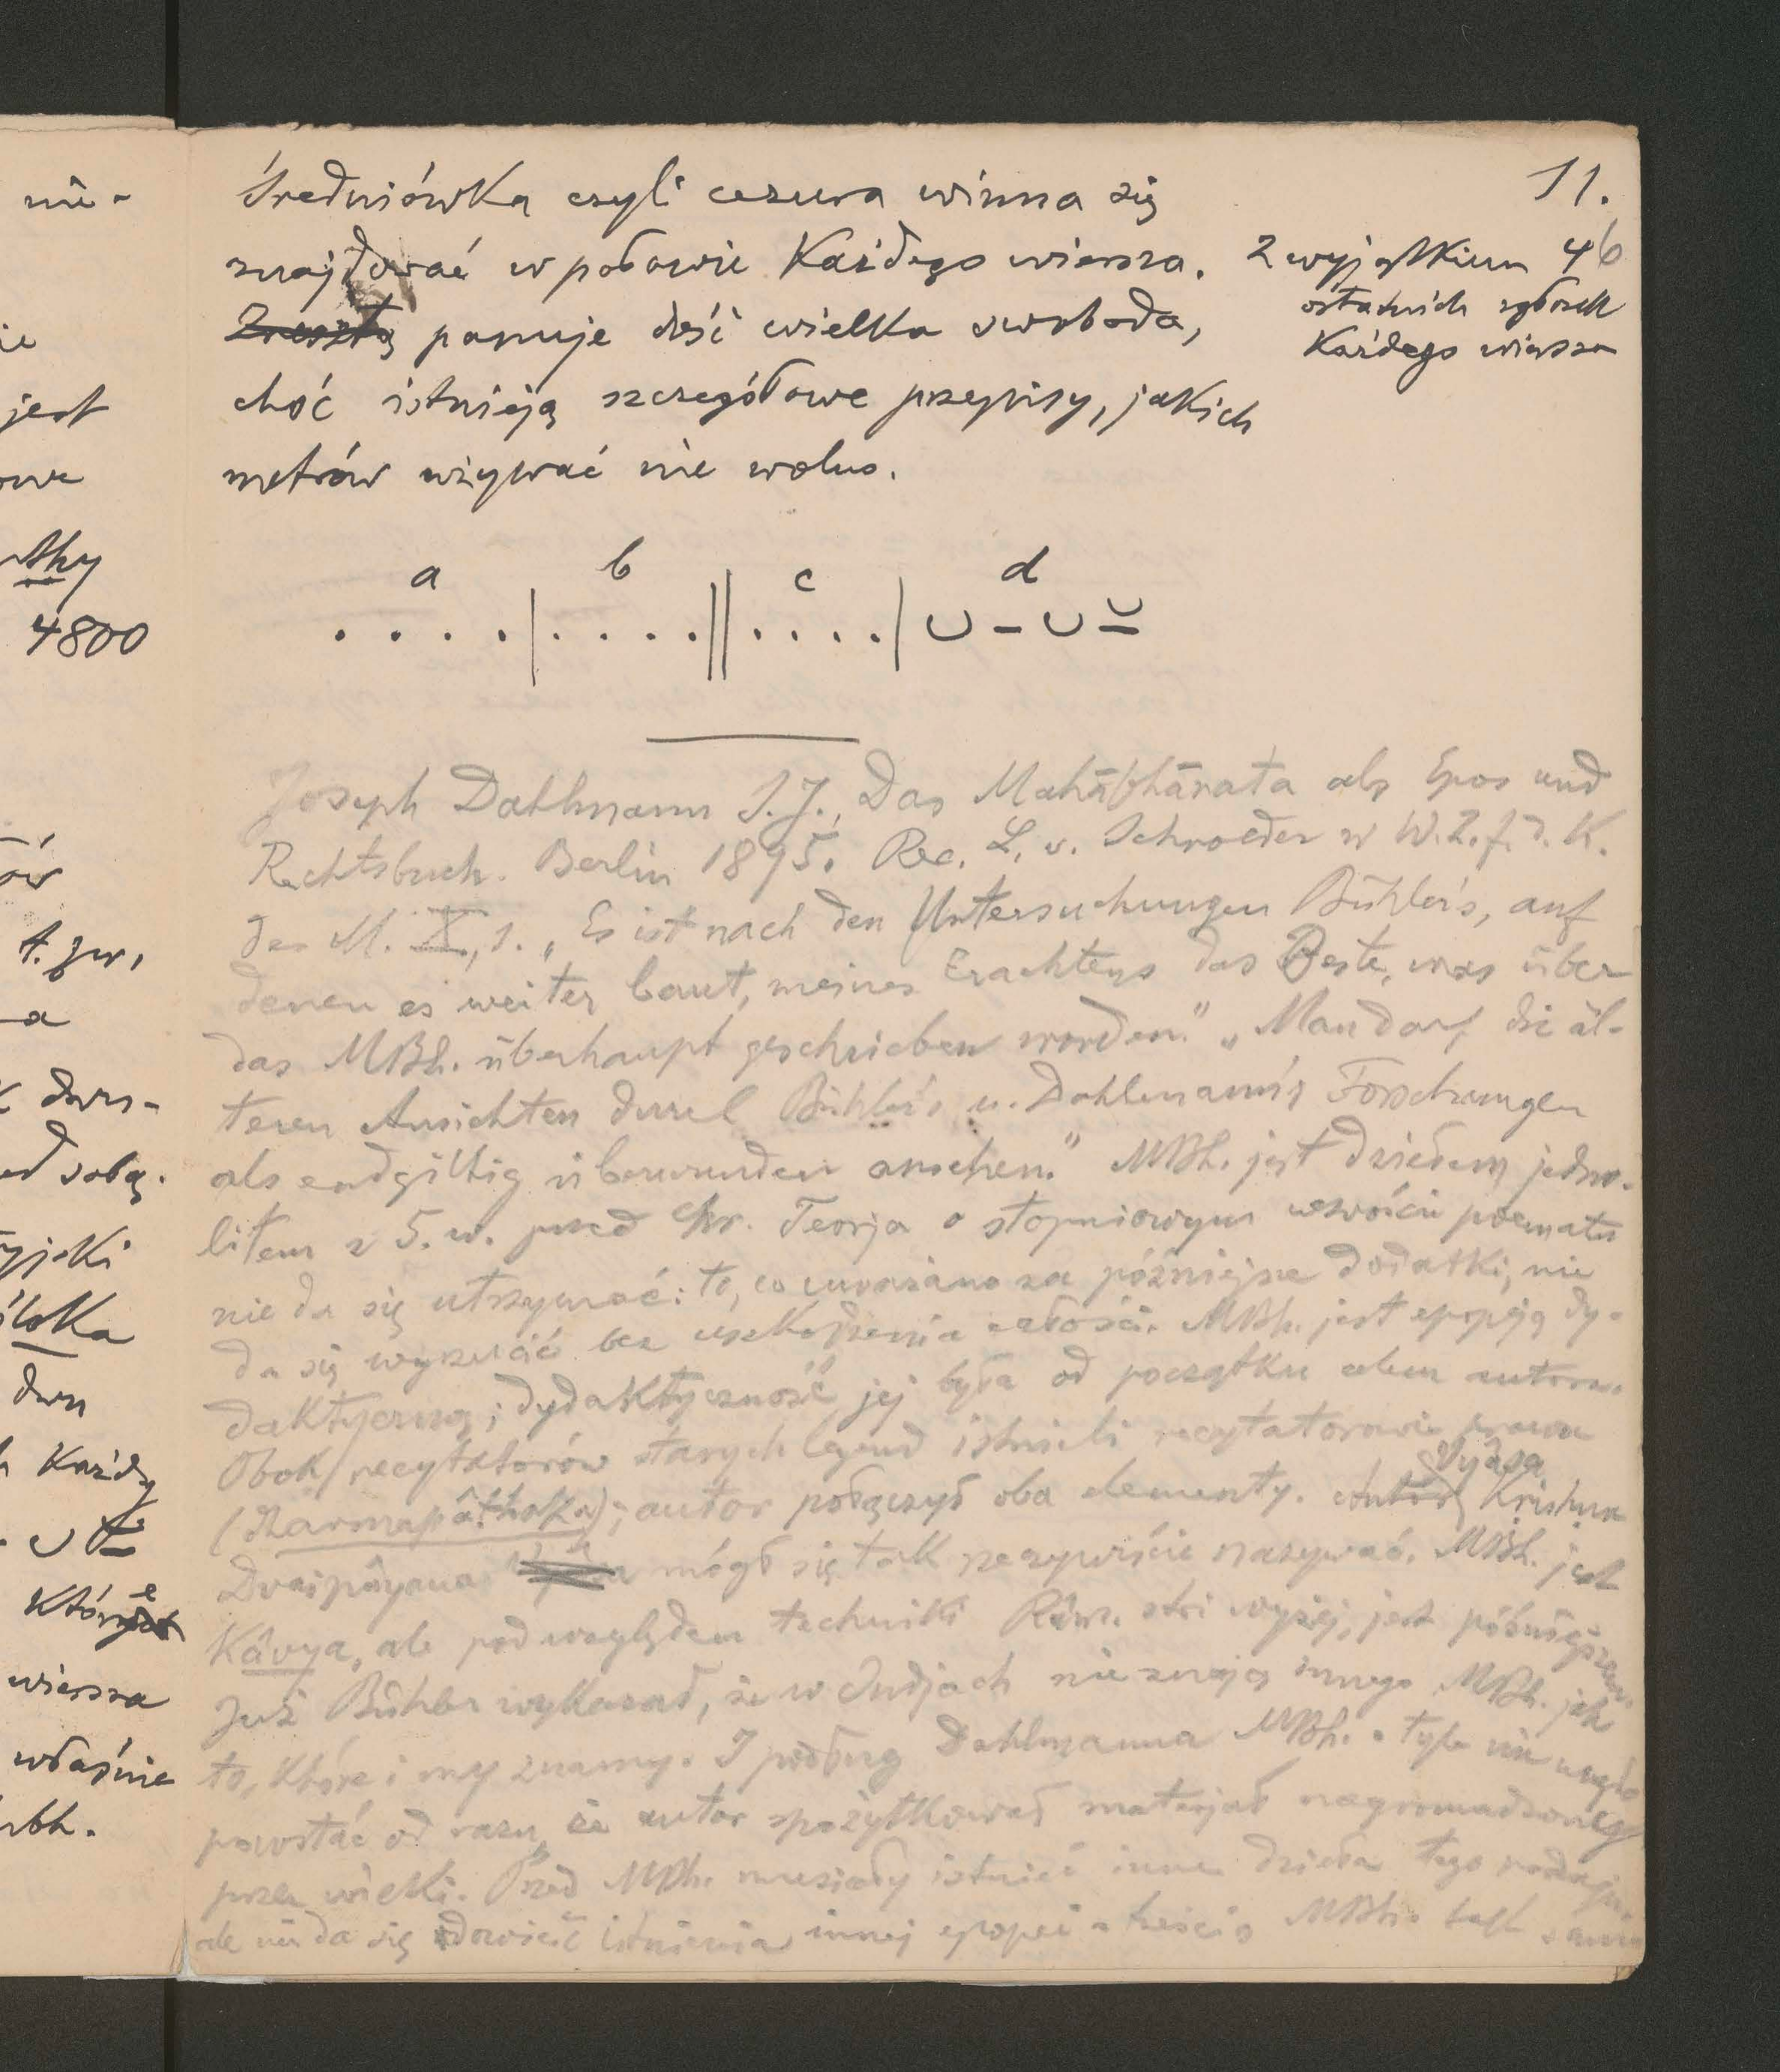 11.
Średniówka czyli cezura winna się
znajdować w połowie każdego wiersza.
Z wyjątkiem 4
ostatnich zgłosek
każdego wiersza
Zresztą panuje dość wielka swoboda,
choć istnieją szczegółowe przepisy, jakich
metrów używać nie wolno.
a b c d
. . . . | . . . . || . . . . | ∪ – ∪ ⏓
Joseph Dahlmann S.J., Das Mahābhārata als Epos und
Rechtsbuch. Berlin 1895. Rec. L. v. Schroeder w W.Z.f.d.K.
des M. X, 1. „Es ist nach den Untersuchungen Bühler's, auf
denen es weiter baut, meines Erachtens das Beste, was über
das MBh. überhaupt geschrieben worden." „Man darf die äl-
teren Ansichten durch Bühler's u. Dahlmann's Forschungen
als endgiltig überwunden ansehen." MBh. jest dziełem jedno-
litem z 5. w. przed Chr. Teorja o stopniowym wzroście poematu
nie da się utrzymać: to, co uważano za późniejsze dodatki, nie
da się wyrzucić bez uszkodzenia całości. MBh. jest epopeją dy-
daktyczną; dydaktyczność jej była od początku celem autora.
Obok recytatorów starych legend istnieli recytatorowie prawa
(dharmapâṭhaka); autor połączył oba elementy. Autor Krishna
Vyâsa
Dvaipâyana mógł się tak rzeczywiście nazywać. MBh. jest
Kâvya, ale pod względem techniki Râm. stoi wyżej, jest późniejszem.
Już Bühler wykazał, że w Indjach nie znają innego MBh. jak
to, które i my znamy. I podług Dahlmanna MBh. o tyle nie mogło
powstać od razu, że autor spożytkował materjał nagromadzony
przez wieki. Przed MBh. musiały istnieć inne dzieła tego rodzaju,
ale nie da się dowieść istnienia innej epopei o treści MBh. tak samo